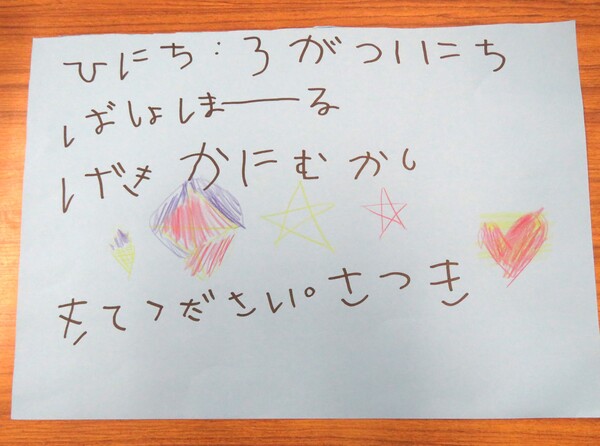 ひにち:3がついにち
ばしょしほーる
げき かにむかし
きてください。さつき